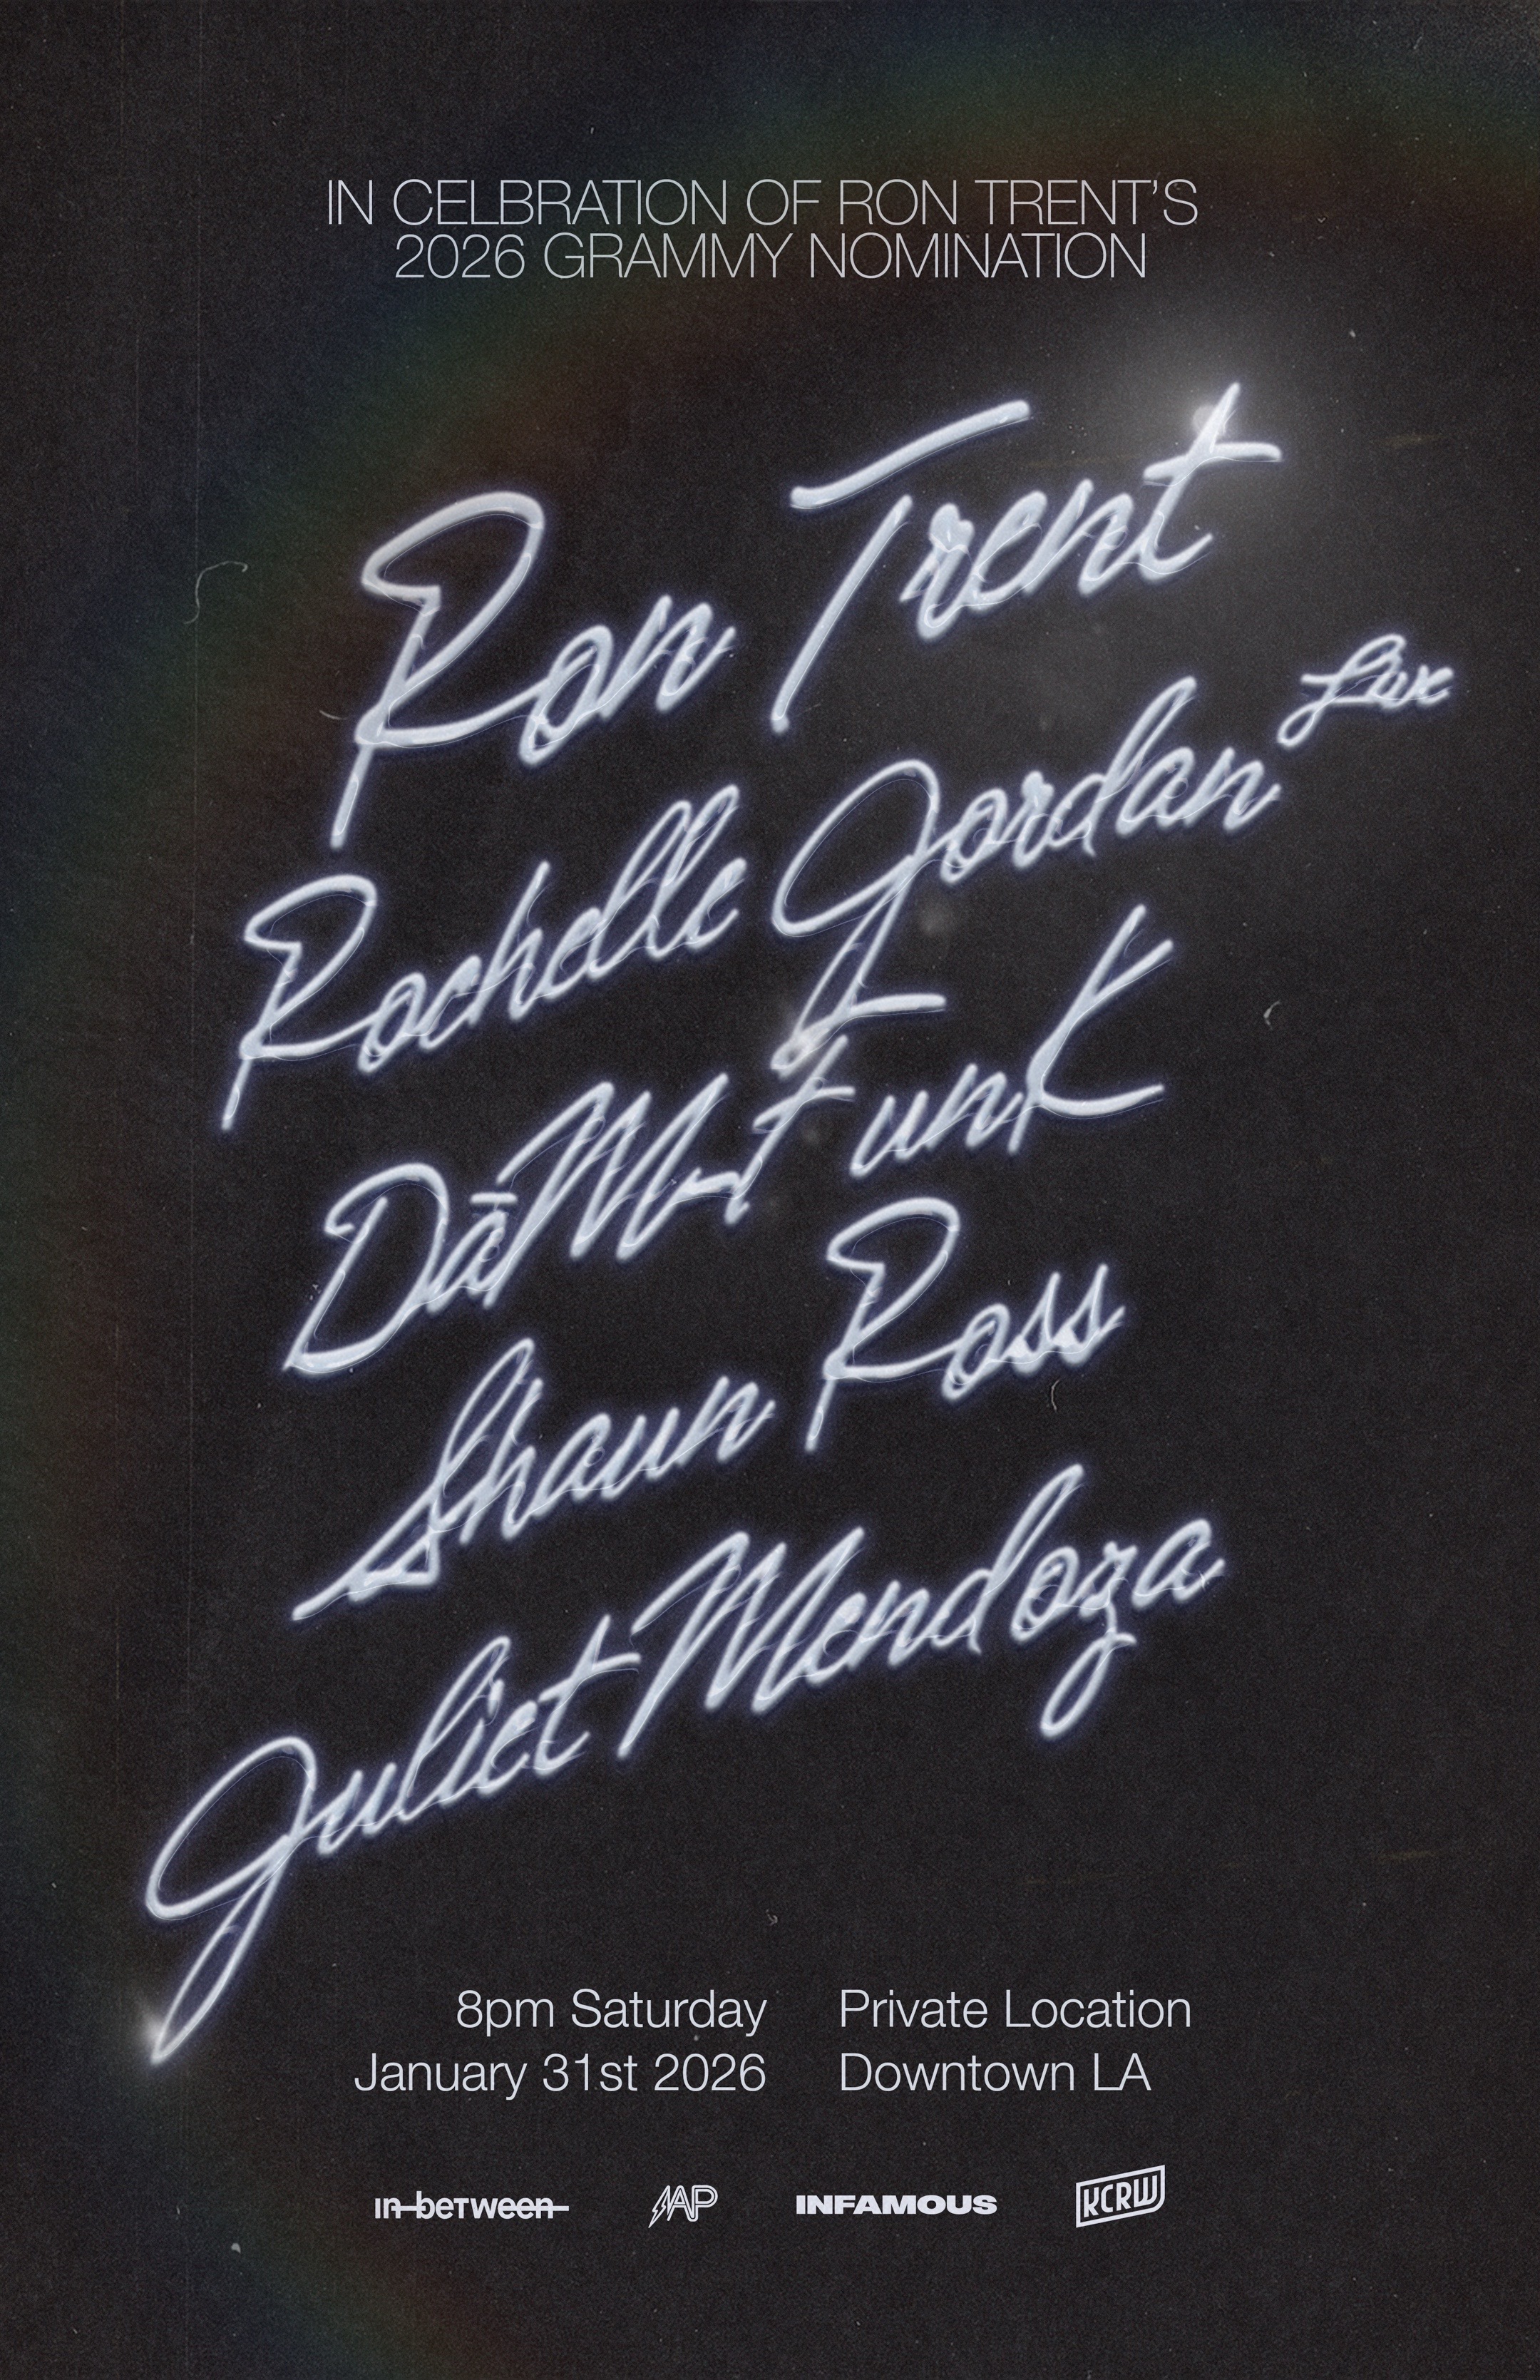 IN CELBRATION OF RON TRENT'S
2026 GRAMMY NOMINATION
Ron Trent
Rochelle Jordan Live
DāM-FunK
Shaun Ross
Juliet Mendoza
8pm Saturday
January 31st 2026
Private Location
Downtown LA
in-between
AP
INFAMOUS
KCRW